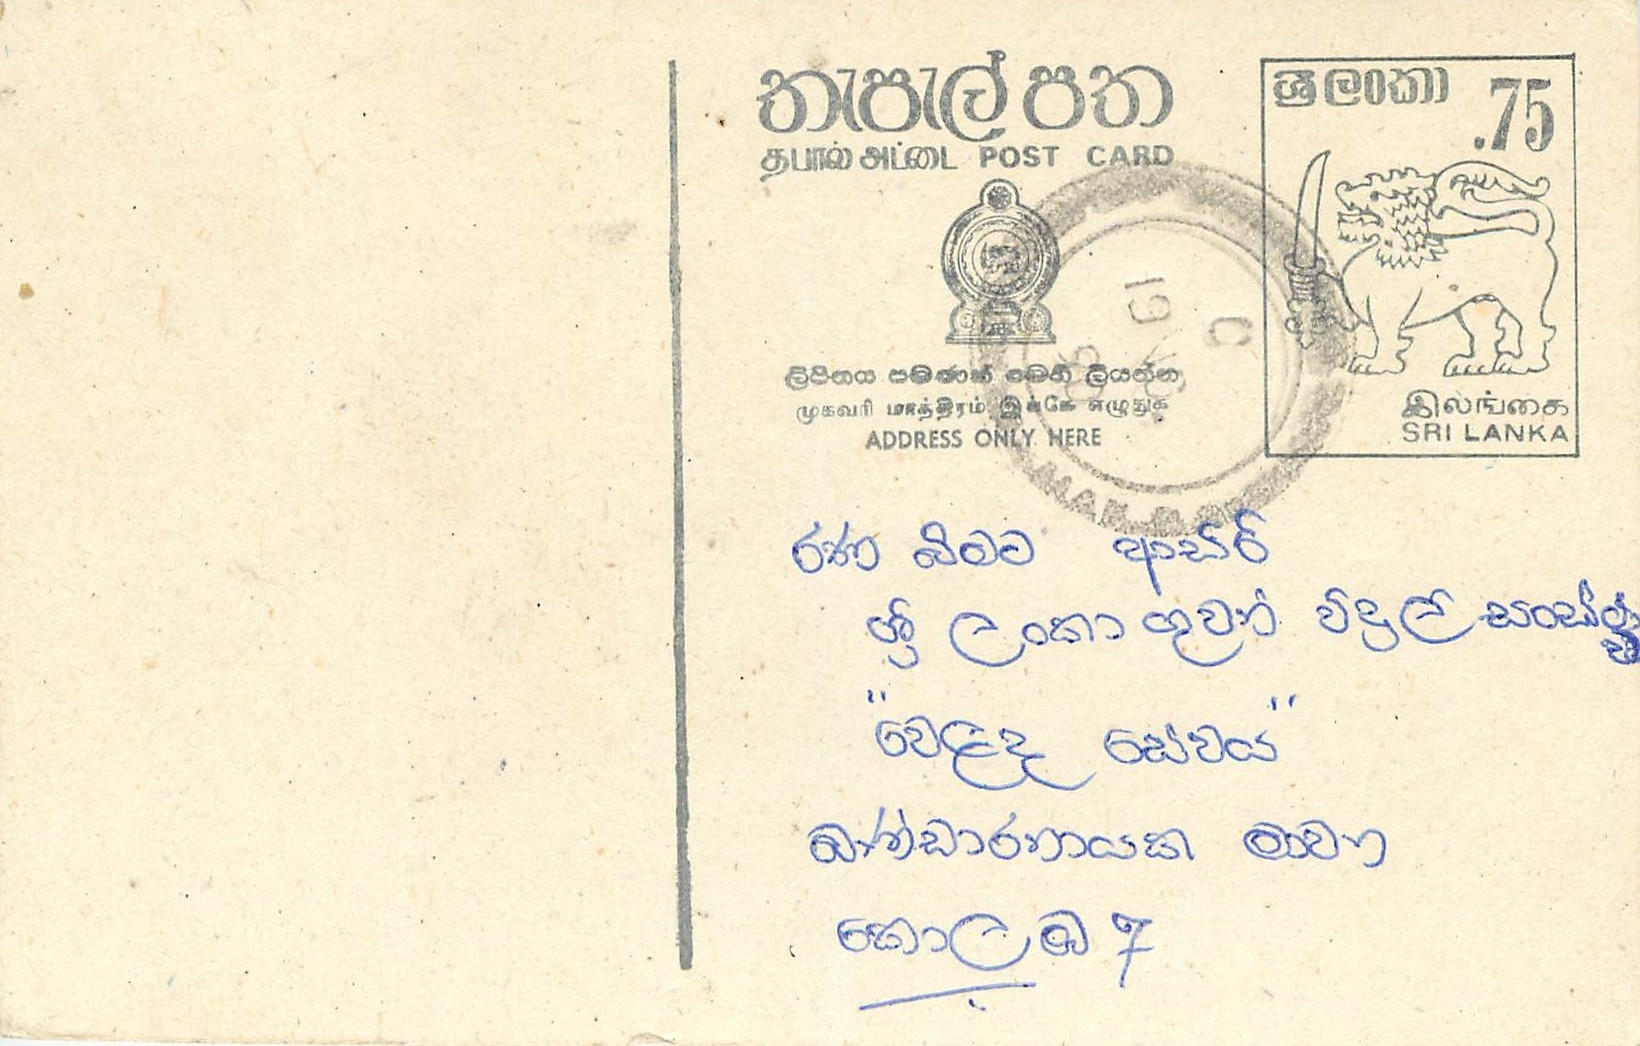 තැපැල් පත
தபால் அட்டை POST CARD
ශ්‍රී ලංකා .75
ලිපිනය පමණක් මෙහි ලියන්න
முகவரி மாத்திரம் இங்கே எழுதுக
ADDRESS ONLY HERE
இலங்கை
SRI LANKA
19
C
රණ බිමට ආසිරි
ශ්‍රී ලංකා ගුවන් විදුලි
"වෙළද සේවය"
බන්ඩාරනායක මාවත
කොලඹ 7